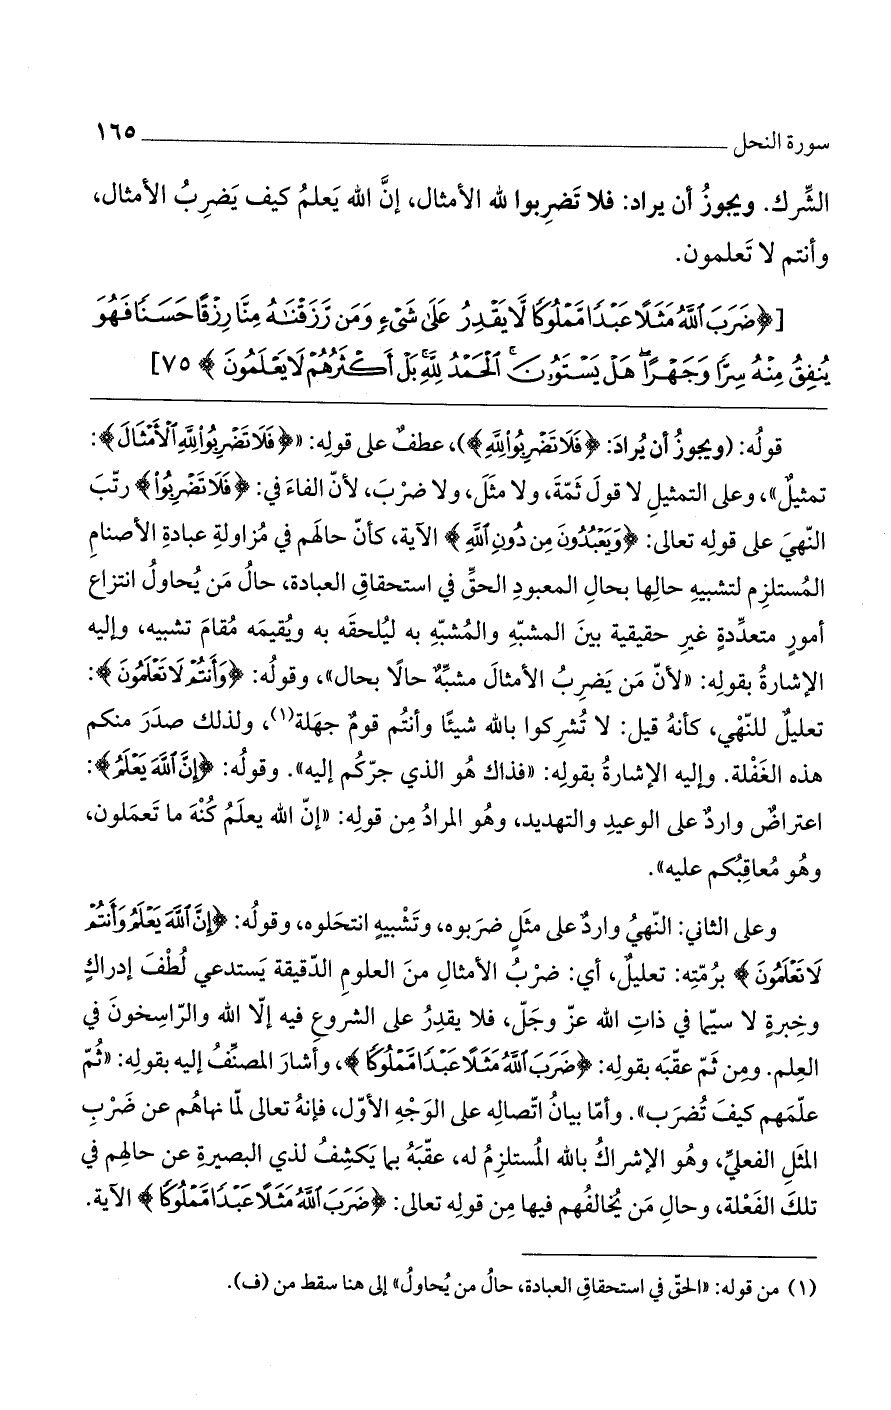 سورة النحل ١٦٥
الشِّرك. ويجوزُ أن يراد: فلا تَضرِبوا لله الأمثال، إنَّ الله يَعلمُ كيف يَضرِبُ الأمثال،
وأنتم لا تَعلمون.
[﴿ضَرَبَ ٱللَّهُ مَثَلًا عَبْدًا مَّمْلُوكًا لَّا يَقْدِرُ عَلَىٰ شَىْءٍ وَمَن رَّزَقْنَـٰهُ مِنَّا رِزْقًا حَسَنًا فَهُوَ
يُنفِقُ مِنْهُ سِرًّا وَجَهْرًا ۖ هَلْ يَسْتَوُۥنَ ۚ ٱلْحَمْدُ لِلَّهِ ۚ بَلْ أَكْثَرُهُمْ لَا يَعْلَمُونَ﴾ ٧٥]
قولُه: (ويجوزُ أن يُرادَ: ﴿فَلَا تَضْرِبُوا۟ لِلَّهِ﴾)، عطفٌ على قولِه: «﴿فَلَا تَضْرِبُوا۟ لِلَّهِ ٱلْأَمْثَالَ﴾:
تمثيلٌ»، وعلى التمثيلِ لا قولَ ثمّةَ، ولا مثَلَ، ولا ضرْبَ، لأنّ الفاءَ في: ﴿فَلَا تَضْرِبُوا۟﴾ رتّبَ
النّهيَ على قولِه تعالى: ﴿وَيَعْبُدُونَ مِن دُونِ ٱللَّهِ﴾ الآية، كأنّ حالَهم في مُزاولةِ عبادةِ الأصنامِ
المُستلزِمِ لتشبيهِ حالِها بحالِ المعبودِ الحقِّ في استحقاقِ العبادة، حالُ مَن يُحاولُ انتزاع
أمورٍ متعدِّدةٍ غيرِ حقيقية بينَ المشبّهِ والمُشبّهِ به ليُلحقَه به ويُقيمَه مُقامَ تشبيه، وإليه
الإشارةُ بقولِه: «لأنّ مَن يَضرِبُ الأمثالَ مشبِّهٌ حالًا بحال»، وقولُه: ﴿وَأَنتُمْ لَا تَعْلَمُونَ﴾:
تعليلٌ للنّهْي، كأنهُ قيل: لا تُشرِكوا بالله شيئًا وأنتُم قومٌ جهَلة(١)، ولذلك صدَرَ منكم
هذه الغَفْلة. وإليه الإشارةُ بقولِه: «فذاك هُو الذي جرّكُم إليه». وقولُه: ﴿إِنَّ ٱللَّهَ يَعْلَمُ﴾:
اعتراضٌ واردٌ على الوعيدِ والتهديد، وهُو المرادُ مِن قولِه: «إنّ الله يعلَمُ كُنْهَ ما تَعمَلون،
وهُو مُعاقِبُكم عليه».
وعلى الثاني: النّهيُ واردٌ على مثَلٍ ضرَبوه، وتَشْبيهٍ انتحَلوه، وقولُه: ﴿إِنَّ ٱللَّهَ يَعْلَمُ وَأَنتُمْ
لَا تَعْلَمُونَ﴾ برُمّتِه: تعليلٌ، أي: ضرْبُ الأمثالِ منَ العلومِ الدّقيقة يَستدعي لُطْفَ إدراكٍ
وخِبرةٍ لا سيّما في ذاتِ الله عزّ وجَلّ، فلا يقدِرُ على الشروعِ فيه إلّا الله والرّاسِخونَ في
العِلم. ومِن ثَمّ عقّبَه بقولِه: ﴿ضَرَبَ ٱللَّهُ مَثَلًا عَبْدًا مَّمْلُوكًا﴾، وأشارَ المصنِّفُ إليه بقولِه: «ثُمّ
علّمَهم كيفَ تُضرَب». وأمّا بيانُ اتّصالِه على الوَجْهِ الأوّل، فإنهُ تعالى لمّا نهاهُم عن ضَرْبِ
المثَلِ الفعليِّ، وهُو الإشراكُ بالله المُستلزِمُ له، عقّبَهُ بما يَكشِفُ لذي البصيرةِ عن حالِهم في
تلكَ الفَعْلة، وحالِ مَن يُخالفُهم فيها مِن قولِه تعالى: ﴿ضَرَبَ ٱللَّهُ مَثَلًا عَبْدًا مَّمْلُوكًا﴾ الآية.
(١) من قوله: «الحقّ في استحقاقِ العبادة، حالُ من يُحاولُ» إلى هنا سقط من (ف).